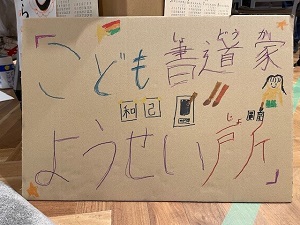 どう か
「こども書道家
和 己
じょ
ようせい所」